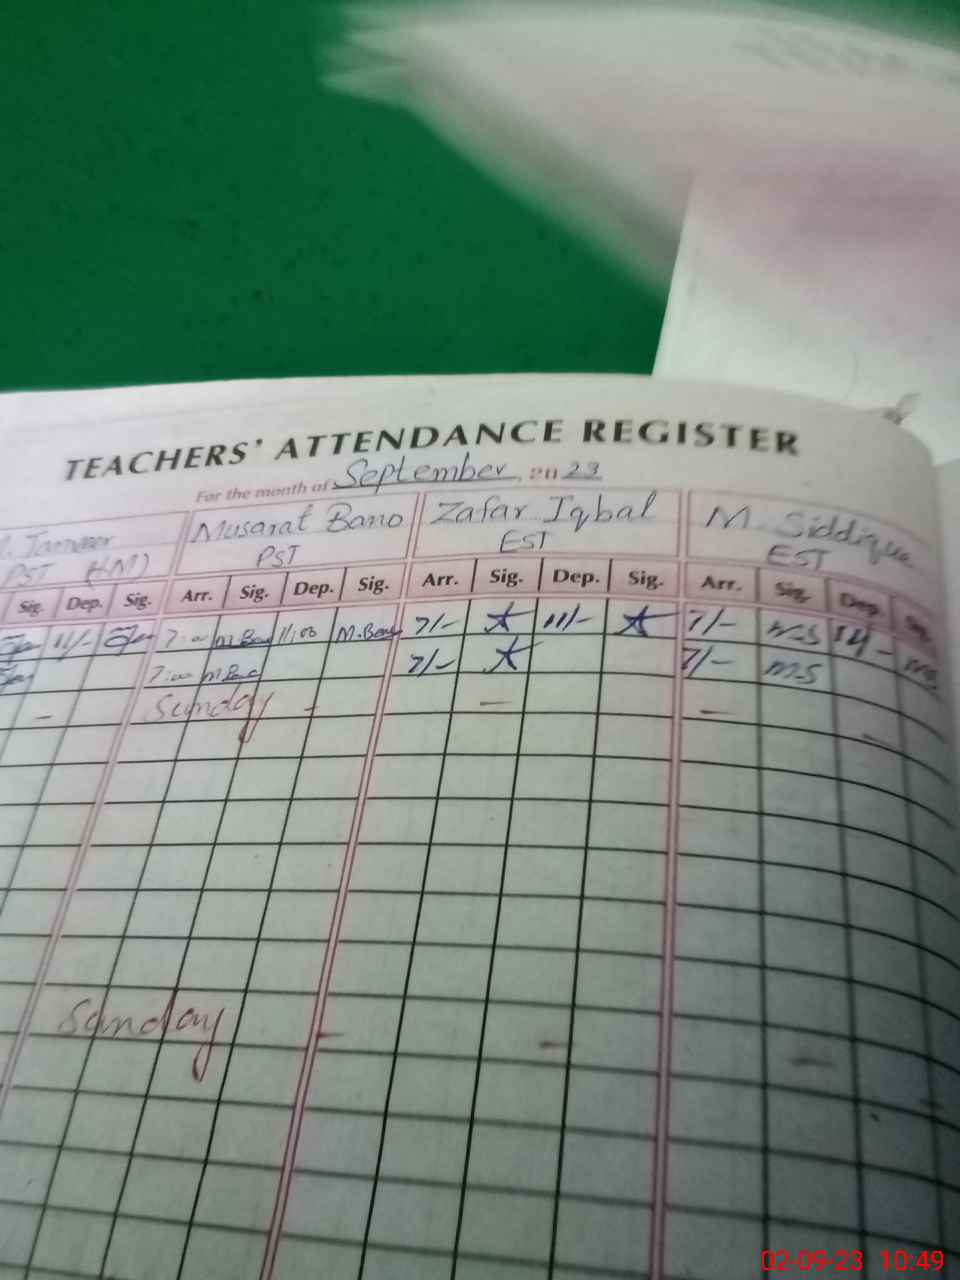 TEACHERS' ATTENDANCE REGISTER
For the month of September, 2023
Tanveer Musarat Bano Zafar Iqbal M. Siddique
PST (HM) PST EST EST
Sig. Dep. Sig. Arr. Sig. Dep. Sig. Arr. Sig. Dep. Sig. Arr. Sig. Dep. Sig.
11/- 7:00 M.Bano 11:00 M.Bano 7/- 11/- 7/- M.S
7:00 M.Bano 7/- 7/- M.S
- Sunday - - - -
Sunday - - -
02-09-23 10:49